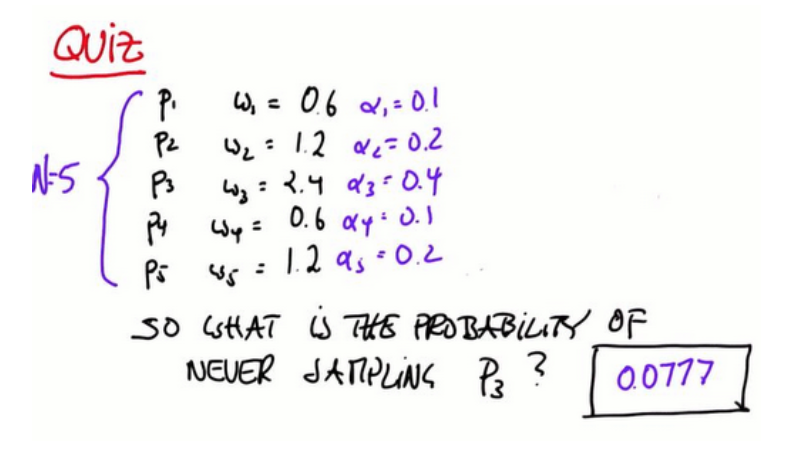 QUiZ
P1 ω1 = 0.6 α1 = 0.1
P2 ω2 = 1.2 α2 = 0.2
N=5 P3 ω3 = 2.4 α3 = 0.4
P4 ω4 = 0.6 α4 = 0.1
P5 ω5 = 1.2 α5 = 0.2
SO WHAT iS THE PROBABiLiTY OF
NEVER SAMPLiNG P3 ? 0.0777